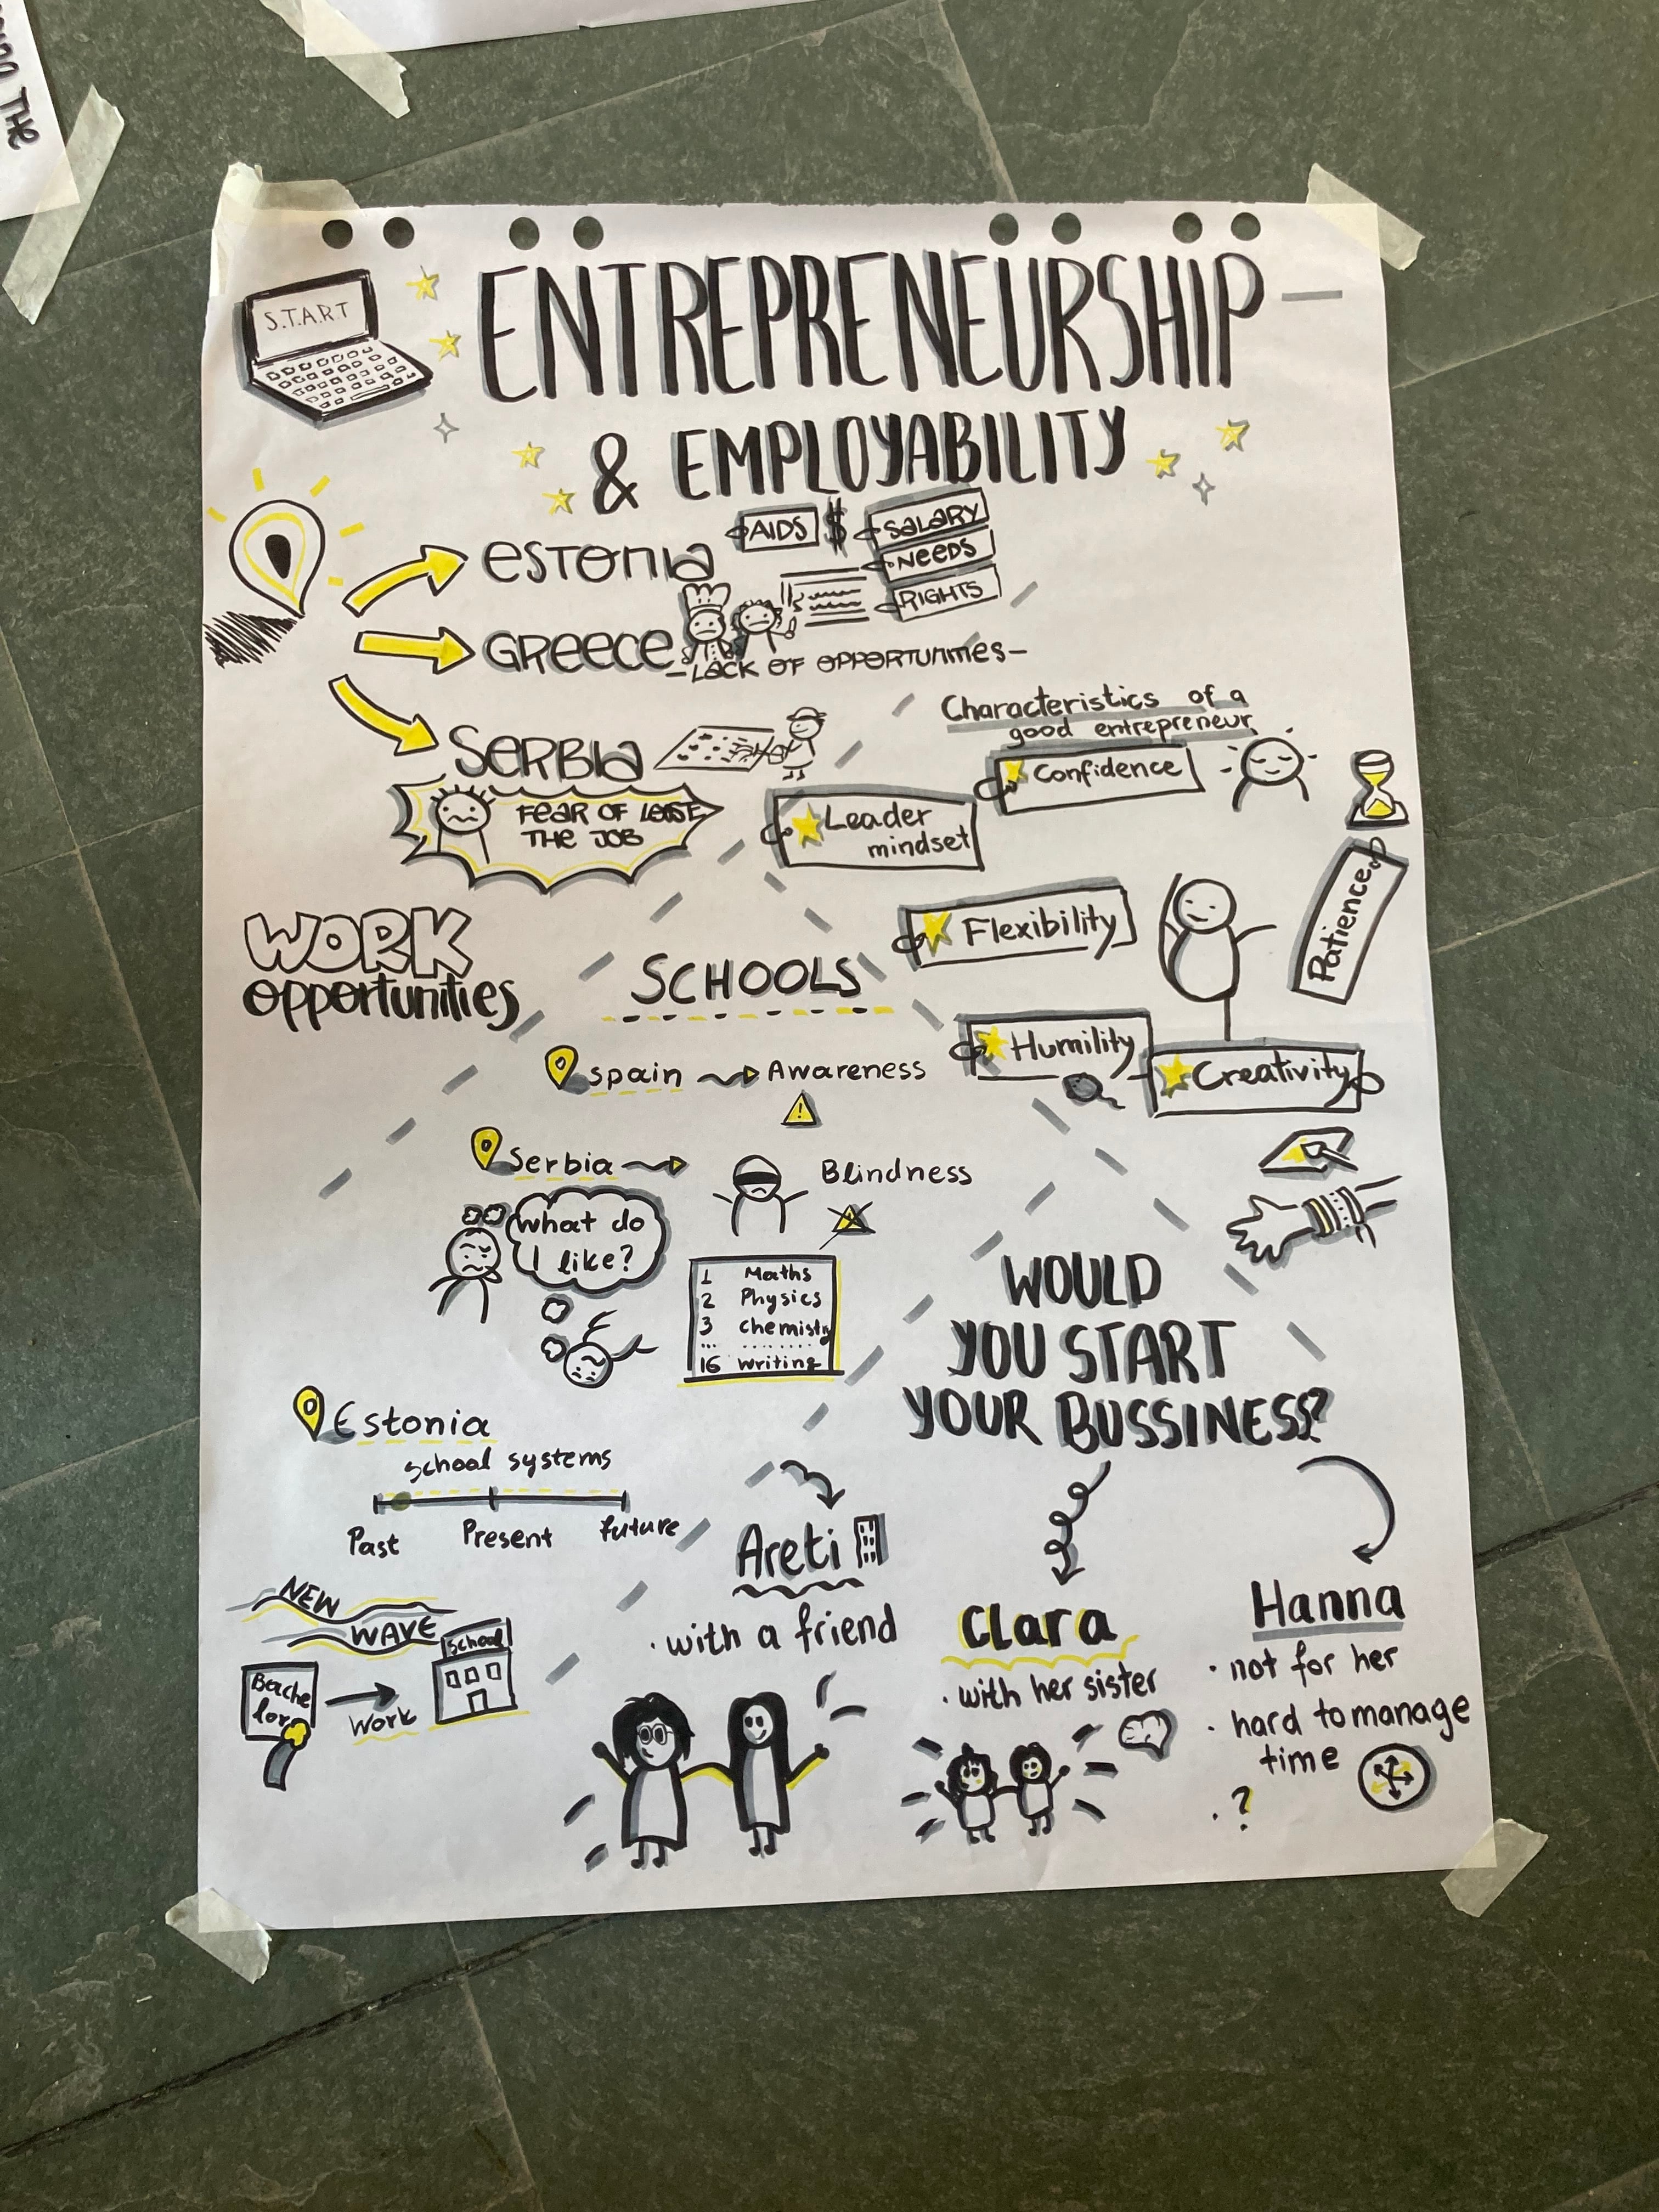 THE
S.T.A.R.T
ENTREPRENEURSHIP
& EMPLOYABILITY
ESTONIA
AIDS
$
SALARY
NEEDS
RIGHTS
GREECE
- LACK OF OPPORTUNITIES -
SERBIA
FEAR OF LOOSE
THE JOB
WORK
opportunities
Characteristics of a
good entrepreneur
Confidence
Leader
mindset
Flexibility
Patience
Humility
Creativity
SCHOOLS
spain
Awareness
!
Serbia
Blindness
what do
I like?
1 Maths
2 Physics
3 chemistry
... ........
16 writing
Estonia
school systems
Past Present future
NEW
WAVE
School
Bache
lor
Work
WOULD
YOU START
YOUR BUSSINESS?
Areti
· with a friend
Clara
· with her sister
Hanna
· not for her
· hard to manage
time
· ?